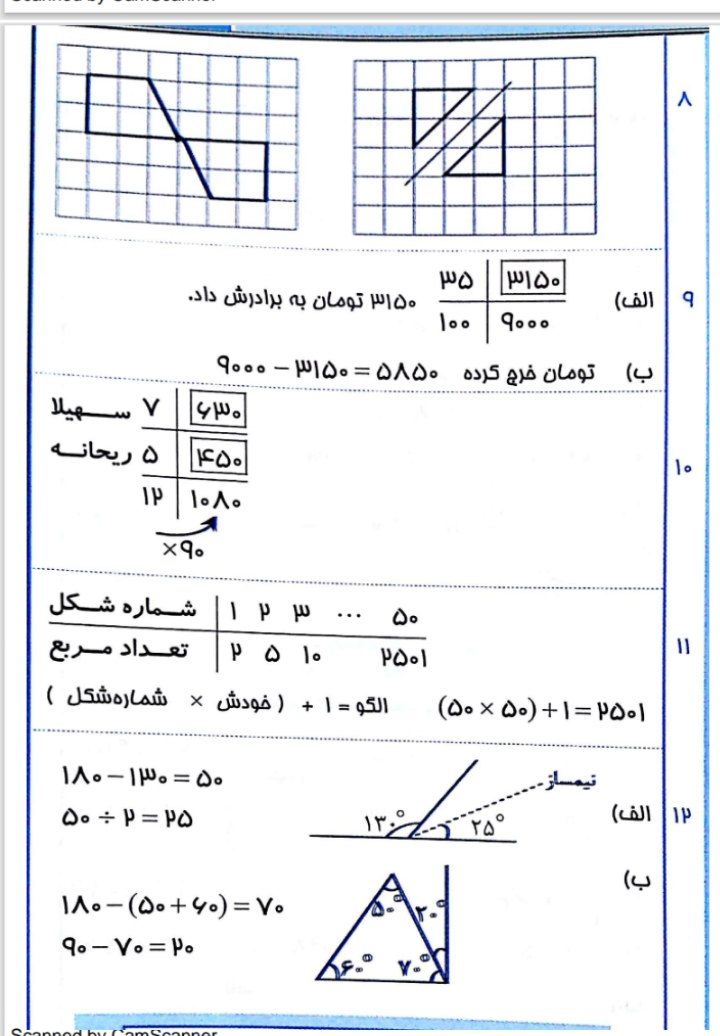 Scanned by CamScanner
۸
۹
الف)
۳۵ | ۳۱۵۰
۱۰۰ | ۹۰۰۰
۳۱۵۰ تومان به برادرش داد.
ب) تومان خرج کرده ۹۰۰۰ − ۳۱۵۰ = ۵۸۵۰
۱۰
سهیلا ۷ | ۶۳۰
ریحانه ۵ | ۴۵۰
۱۲ | ۱۰۸۰
×۹۰
۱۱
شماره شکل | ۱ ۲ ۳ ... ۵۰
تعداد مربع | ۲ ۵ ۱۰ ۲۵۰۱
الگو = ۱ + (خودش × شماره‌شکل) (۵۰ × ۵۰) + ۱ = ۲۵۰۱
۱۲
الف)
۱۸۰ − ۱۳۰ = ۵۰
۵۰ ÷ ۲ = ۲۵
نیمساز
۱۳۰° ۲۵°
ب)
۱۸۰ − (۵۰ + ۶۰) = ۷۰
۹۰ − ۷۰ = ۲۰
۵۰° ۲۰°
۶۰° ۷۰°
Scanned by CamScanner